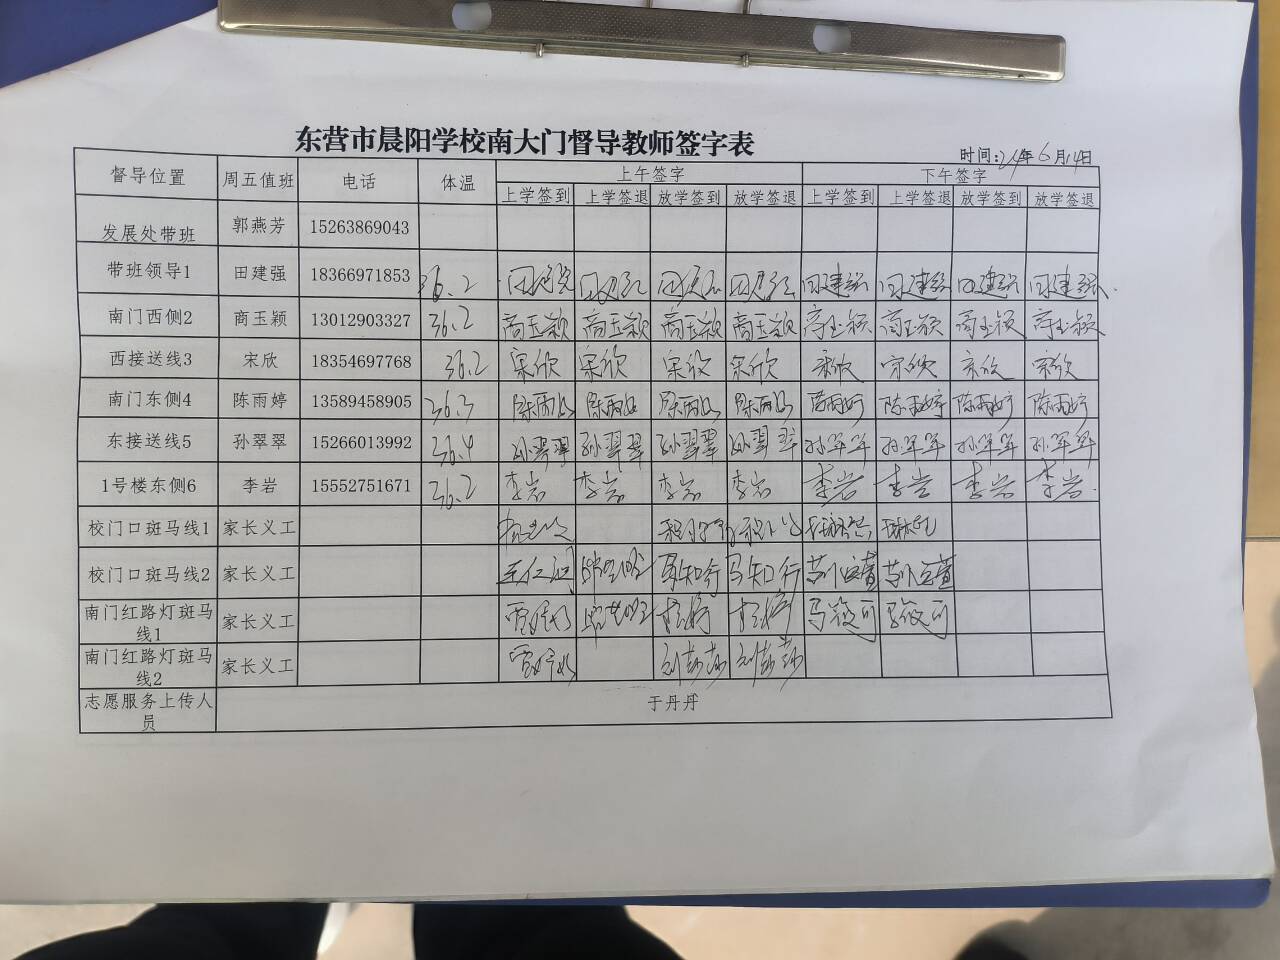 东营市晨阳学校南大门督导教师签字表
时间:24年6月14日
督导位置 周五值班 电话 体温 上午签字 下午签字
上学签到 上学签退 放学签到 放学签退 上学签到 上学签退 放学签到 放学签退
发展处带班 郭燕芳 15263869043
带班领导1 田建强 18366971853 36.2 田建强 田建强 田建强 田建强 田建强 田建强 田建强 田建强
南门西侧2 商玉颖 13012903327 36.2 商玉颖 商玉颖 商玉颖 商玉颖 商玉颖 商玉颖 商玉颖 商玉颖
西接送线3 宋欣 18354697768 36.2 宋欣 宋欣 宋欣 宋欣 宋欣 宋欣 宋欣 宋欣
南门东侧4 陈雨婷 13589458905 36.3 陈雨婷 陈雨婷 陈雨婷 陈雨婷 陈雨婷 陈雨婷 陈雨婷 陈雨婷
东接送线5 孙翠翠 15266013992 36.4 孙翠翠 孙翠翠 孙翠翠 孙翠翠 孙翠翠 孙翠翠 孙翠翠 孙翠翠
1号楼东侧6 李岩 15552751671 36.2 李岩 李岩 李岩 李岩 李岩 李岩 李岩 李岩
校门口斑马线1 家长义工
校门口斑马线2 家长义工 马知行 马知行
南门红路灯斑马线1 家长义工
南门红路灯斑马线2 家长义工
志愿服务上传人员 于丹丹